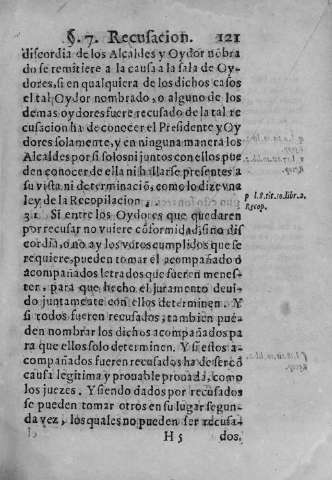 §. 7. Recusacion. 121
discordia de los Alcaldes y Oydor nõbra
do se remitiere a la causa a la sala de Oy-
dores, si en qualquiera de los dichos casos
el tal Oydor nombrado, o alguno de los
demas oydores fuere recusado de la tal re
cusacion ha de conocer el Presidente y Oy
dores solamente, y en ninguna manera los
Alcaldes por si solos ni juntos con ellos pue
den conocer de ella ni hallarse presentes a
su vista ni determinació, como lo dize vna
ley de la Recopilacion,
p l.8.tit.10.libr.2.
Recop.
31 Si entre los Oydores que quedaren
por recusar no vuiere cõformidad, sino dis
cordia, o no ay los votos cumplidos que se
requiere, pueden tomar el acompañado ò
acompañados letrados que fueren menes-
ter, para que hecho el juramento deui-
do juntamente con ellos determinen. Y
si todos fueren recusados, tambien pue-
den nombrar los dichos acompañados pa
ra que ellos solo determinen. Y si estos a-
compañados fueren recusados ha de ser cõ
causa legitima y prouable prouada, como
los juezes. Y siendo dados por recusados
se pueden tomar otros en su lugar segun-
da vez, los quales no pueden ser recusa-
H 5 dos.